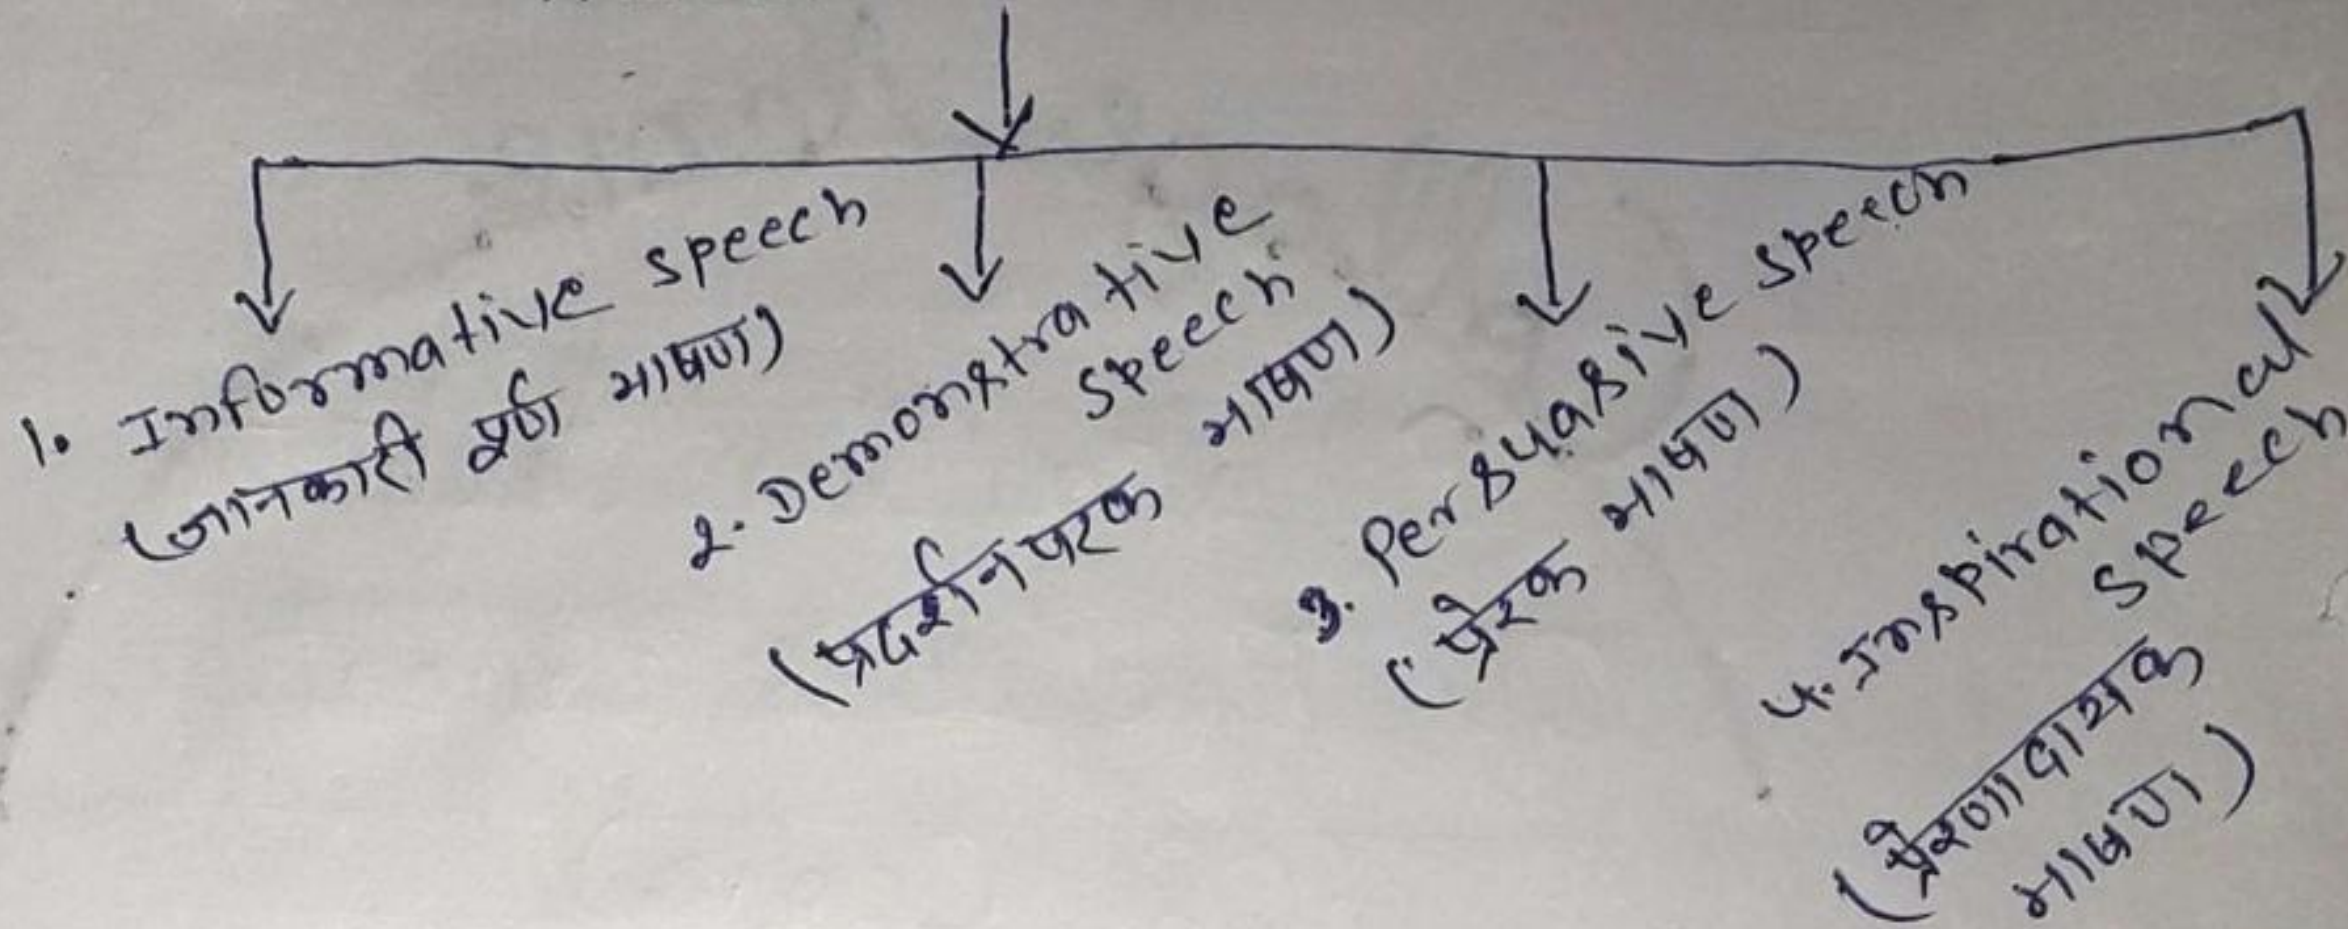 1. Informative speech
(जानकारी पूर्ण भाषण)
2. Demonstrative
speech
(प्रदर्शनपरक भाषण)
3. Persuasive speech
(प्रेरक भाषण)
4. Inspirational
speech
(प्रेरणादायक
भाषण)